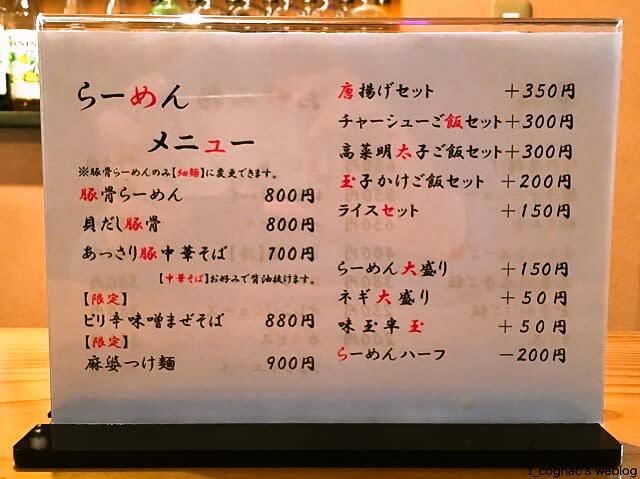 らーめん
メニュー
※豚骨らーめんのみ【細麺】に変更できます。
豚骨らーめん 800円
貝だし豚骨 800円
あっさり豚中華そば 700円
【中華そば】お好みで醤油抜けます。
【限定】
ピリ辛味噌まぜそば 880円
【限定】
麻婆つけ麺 900円
唐揚げセット +350円
チャーシューご飯セット+300円
高菜明太子ご飯セット+300円
玉子かけご飯セット +200円
ライスセット +150円
らーめん大盛り +150円
ネギ大盛り +50円
味玉半玉 +50円
らーめんハーフ -200円
t_cognac's weblog